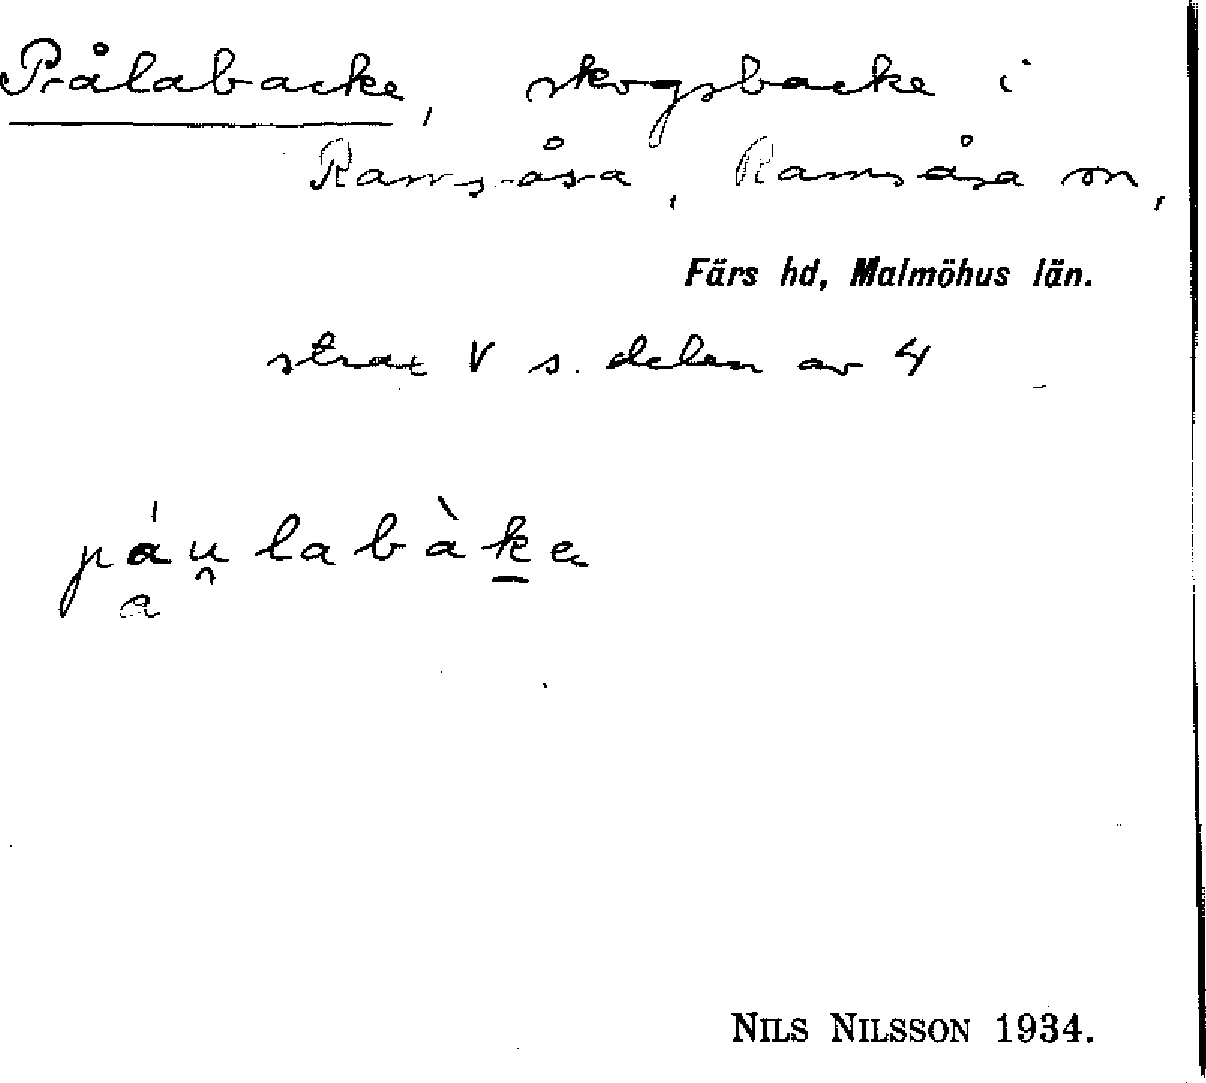 Pålabacke, skogsbacke i
Ramsåsa, Ramsåsa sn,
Färs hd, Malmöhus län.
strax V s. delen av 4
páu̯labàk̲a
a
NILS NILSSON 1934.